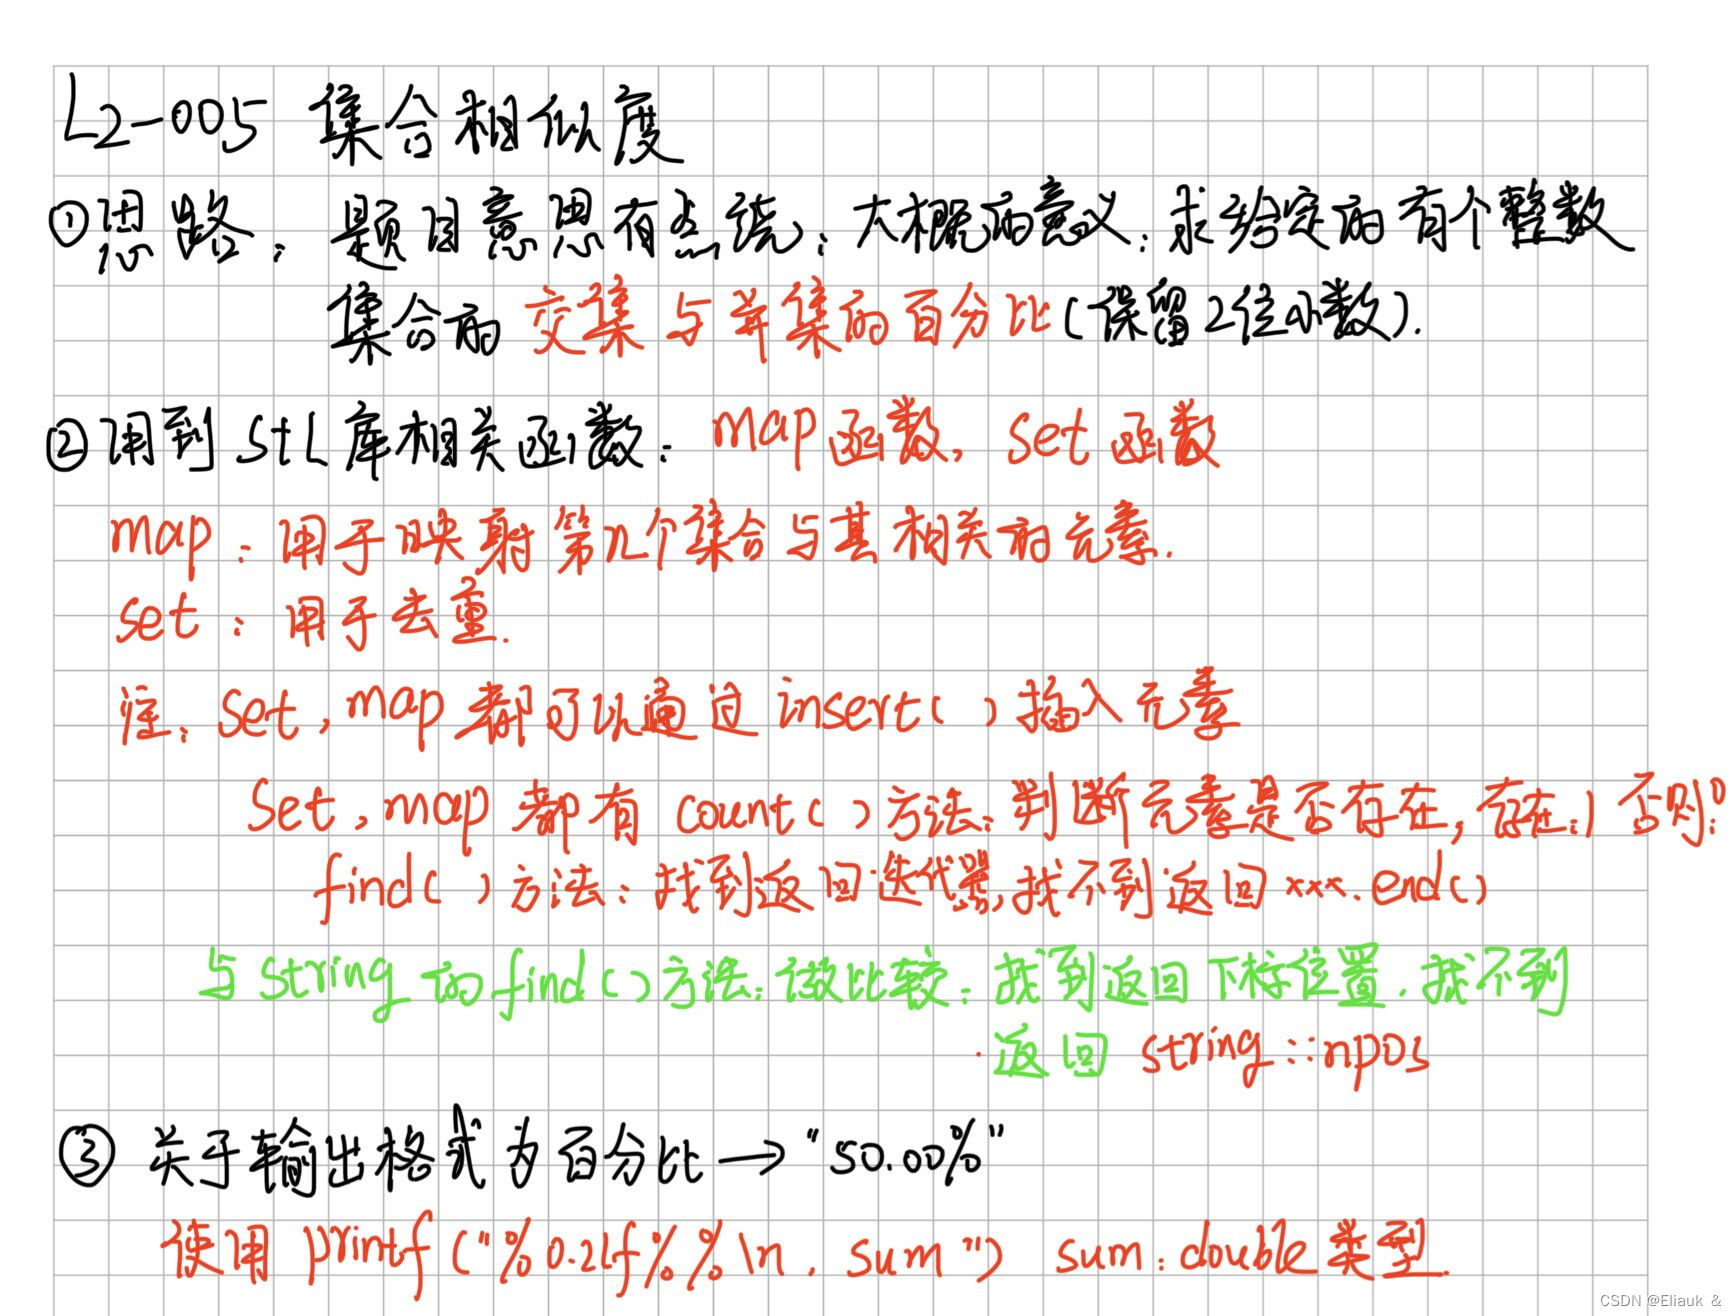 L2-005 集合相似度
①思路：题目意思有点绕；大概的意义：求给定的有个整数
集合的交集与并集的百分比(保留2位小数).
②用到StL库相关函数：map函数，set函数
map：用于映射第n个集合与其相关的元素.
set：用于去重.
注：set，map都可以通过insert()插入元素
set，map都有count()方法：判断元素是否存在，存在:1 否则:0
find()方法：找到返回迭代器，找不到返回xxx.end()
与string的find()方法：做比较：找到返回下标位置.找不到
返回 string::npos
③关于输出格式为百分比→"50.00%"
使用printf("%0.2lf%%\n，sum") sum：double类型.
CSDN @Eliauk &